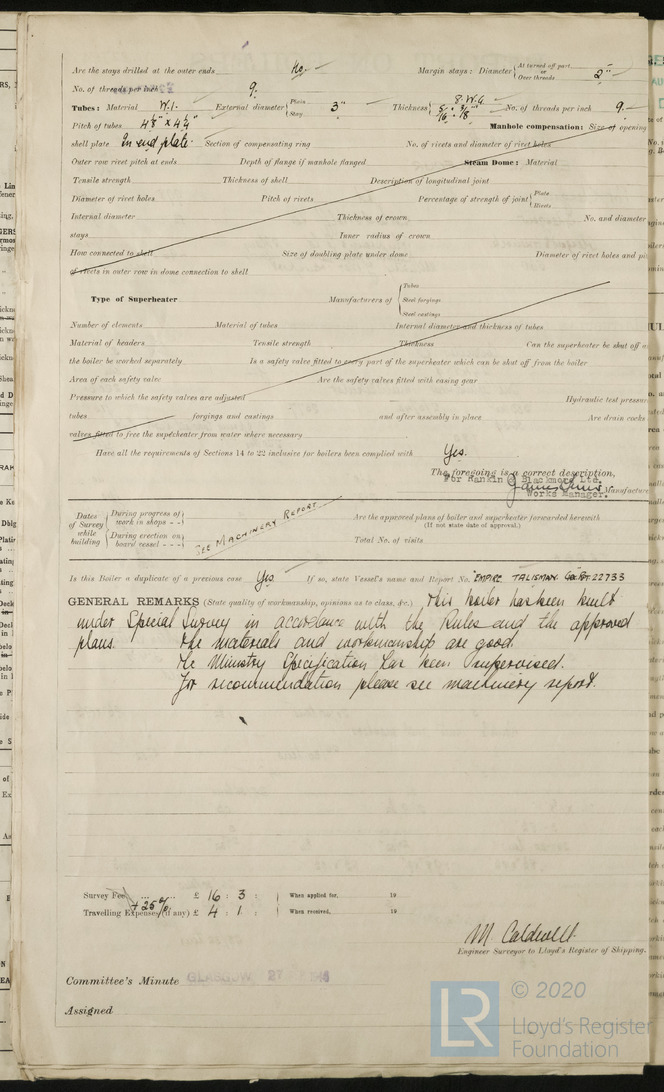 Are the stays drilled at the outer ends No. Margin stays: Diameter { At turned off part, or Over threads 2"
No. of threads per inch 9.
Tubes: Material W.I. External diameter { Plain Stay 3" Thickness { 8 W.G. 5/16 3/8 No. of threads per inch 9.
Pitch of tubes 4 1/8" x 4 1/4" Manhole compensation: Size of opening
shell plate In end plate Section of compensating ring No. of rivets and diameter of rivet holes
Outer row rivet pitch at ends Depth of flange if manhole flanged Steam Dome: Material
Tensile strength Thickness of shell Description of longitudinal joint
Diameter of rivet holes Pitch of rivets Percentage of strength of joint { Plate Rivets
Internal diameter Thickness of crown No. and diameter
stays Inner radius of crown
How connected to shell Size of doubling plate under dome Diameter of rivet holes and
of rivets in outer row in dome connection to shell
Type of Superheater Manufacturers of { Tubes Steel forgings Steel castings
Number of elements Material of tubes Internal diameter and thickness of tubes
Material of headers Tensile strength Thickness Can the superheater be shut off
the boiler be worked separately Is a safety valve fitted to every part of the superheater which can be shut off from the boiler
Area of each safety valve Are the safety valves fitted with easing gear
Pressure to which the safety valves are adjusted Hydraulic test pressure
tubes forgings and castings and after assembly in place Are drain cocks
valves fitted to free the superheater from water where necessary
Have all the requirements of Sections 14 to 22 inclusive for boilers been complied with Yes.
The foregoing is a correct description,
For Rankin & Blackmore Ltd.
Works Manager. Manufacture
Dates of Survey while building { During progress of work in shops - - During erection on board vessel - - - SEE MACHINERY REPORT Are the approved plans of boiler and superheater forwarded herewith
(If not state date of approval.)
Total No. of visits
Is this Boiler a duplicate of a previous case Yes. If so, state Vessel's name and Report No. "EMPIRE TALISMAN" 22733
GENERAL REMARKS (State quality of workmanship, opinions as to class, &c.) This boiler has been built
under Special Survey in accordance with the Rules and the approved
plans. The materials and workmanship are good.
The Ministry Specification has been supervised.
For recommendation please see machinery report.
Survey Fee £ 16 : 3 : When applied for, 19
+ 25%
Travelling Expenses (if any) £ 4 : 1 : When received, 19
M. Caldwell.
Engineer Surveyor to Lloyd's Register of Shipping.
Committee's Minute GLASGOW 27
Assigned
LR
© 2020
Lloyd's Register
Foundation